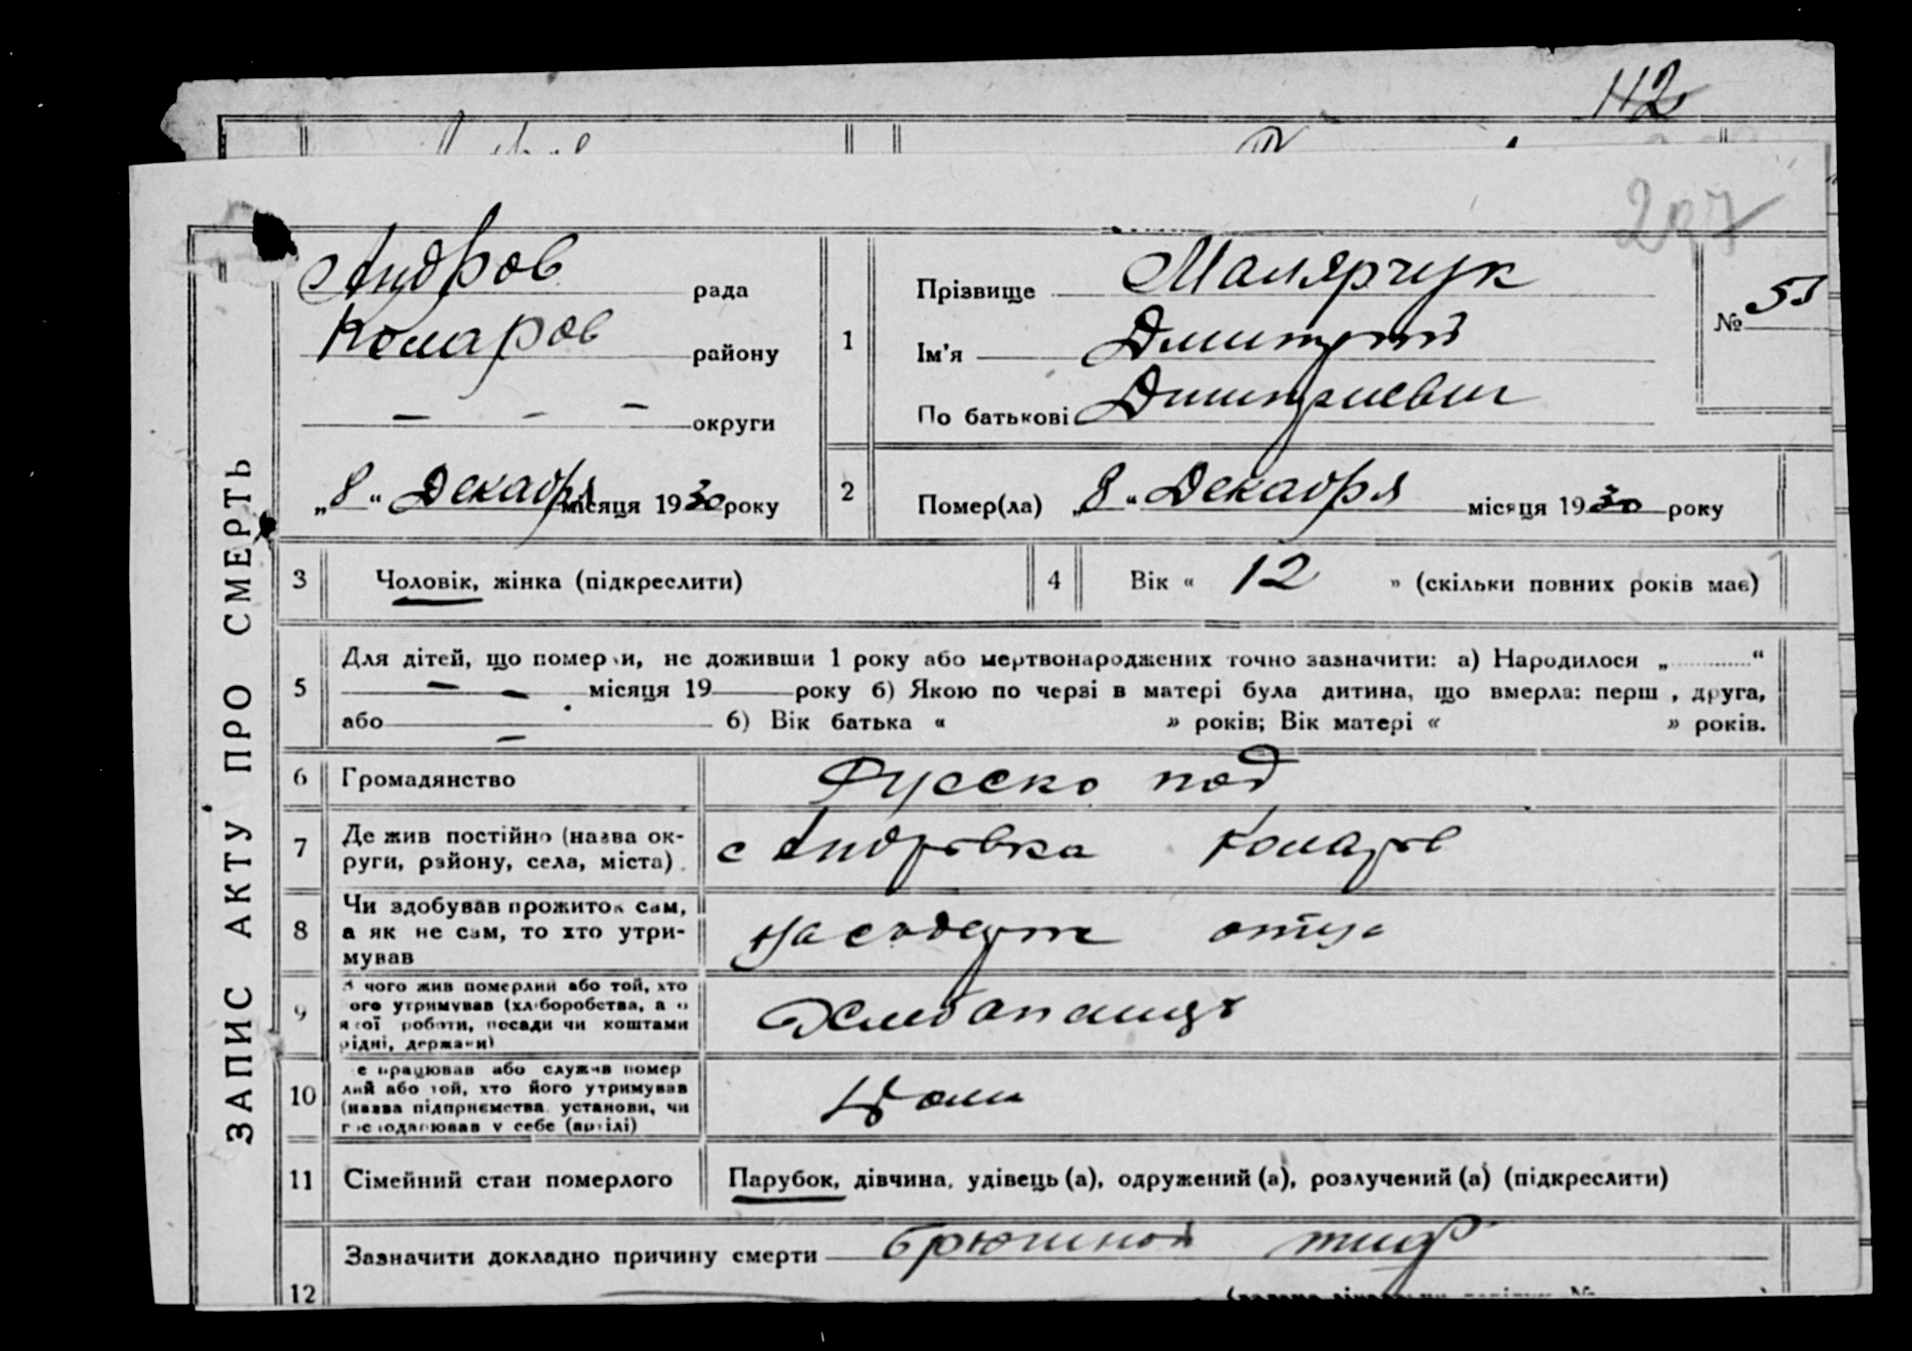 112
207
ЗАПИС АКТУ ПРО СМЕРТЬ
Андров рада
Комаров району
— - — округи
„8“ Декабря місяця 1930 року
1
Прізвище Малярчук
Ім'я Дмитрий
По батькові Дмитриевич
№ 55
2 Помер(ла) „8“ Декабря місяця 1930 року
3 Чоловік, жінка (підкреслити)
4 Вік « 12 » (скільки повних років має)
5 Для дітей, що померли, не доживши 1 року або мертвонароджених точно зазначити: а) Народилося „ “
— — місяця 19 року б) Якою по черзі в матері була дитина, що вмерла: перш , друга,
або — 6) Вік батька « » років; Вік матері « » років.
6 Громадянство Русско под
7 Де жив постійно (назва ок-
руги, району, села, міста). с Андровка Комаров
8 Чи здобував прожиток сам,
а як не сам, то хто утри-
мував
отца
9 чого жив померлий або той, хто
ого утримував (хліборобства, а
якої роботи, посади чи коштами
рідні, держави)
10 е працював або служив помер
лий або той, хто його утримував
(назва підприємства, установи, чи
господарював у себе (артілі)
11 Сімейний стан померлого Парубок, дівчина, удівець (а), одружений (а), розлучений (а) (підкреслити)
12 Зазначити докладно причину смерти брюшной тиф